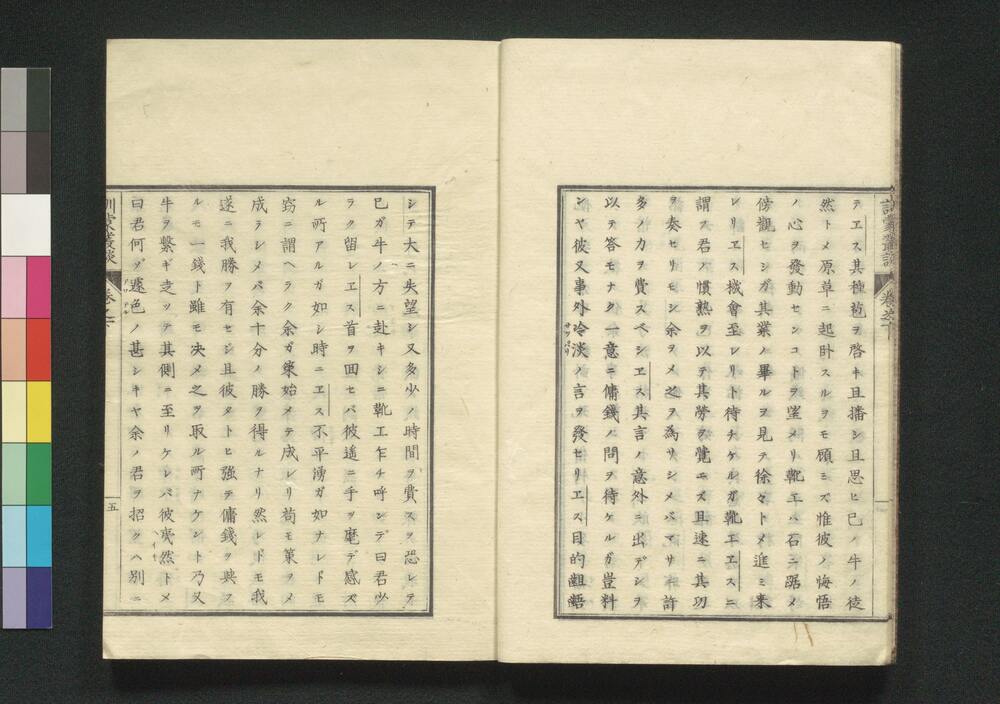 テエス其種苞ヲ啓キ且播シ且思ヒ己ノ牛ノ徒
然トメ原草ニ起卧スルヲモ顧ミズ惟彼ノ悔悟
ノ心ヲ發動センコトヲ望メリ靴工ハ石ニ踞メ
傍觀ヒシガ其業ノ畢ルヲ見テ徐々トメ進ミ来
レリエス機會至レリト待チケルガ靴工エスニ
謂フ君ノ慣熟ヲ以テ其勞ヲ覺エズ且速ニ其功
ヲ奏セリモシ余ヲメ之ヲ為サシメバマサニ許
多ノ力ヲ費スベシエス其言ノ意外ニ出デシヲ
以テ答モナク一意ニ傭錢ノ問ヲ待ケルガ豈料
ンヤ彼又事外冷淡ノ言ヲ發セリエス目的齟齬
サツパリ
シテ大ニ失望シ又多少ノ時間ヲ費スヲ恐レテ
已ガ牛ノ方ニ赴キシニ靴工乍チ呼ンデ曰君少
ラク留レエス首ヲ回セバ彼遙ニ手ヲ麾デ感ズ
ル所アルガ如シ時ニエス不平湧ガ如ナレドモ
窃ニ謂ヘラク余ガ策始メテ成レリ苟モ策ヲメ
成ラシメバ余十分ノ勝ヲ得ルナリ然レドモ我
遂ニ我勝ヲ有セシ且彼タトヒ強テ傭錢ヲ與フ
ルモ一錢ト雖モ决メ之ヲ取ル所ナケント乃又
牛ヲ繫ギ走ッテ其側ニ至リケレバ彼夷然トメ
曰君何ゾ遽色ノ甚シキヤ余ノ君ヲ招クハ別ニ
訓蒙叢談
卷之下
五